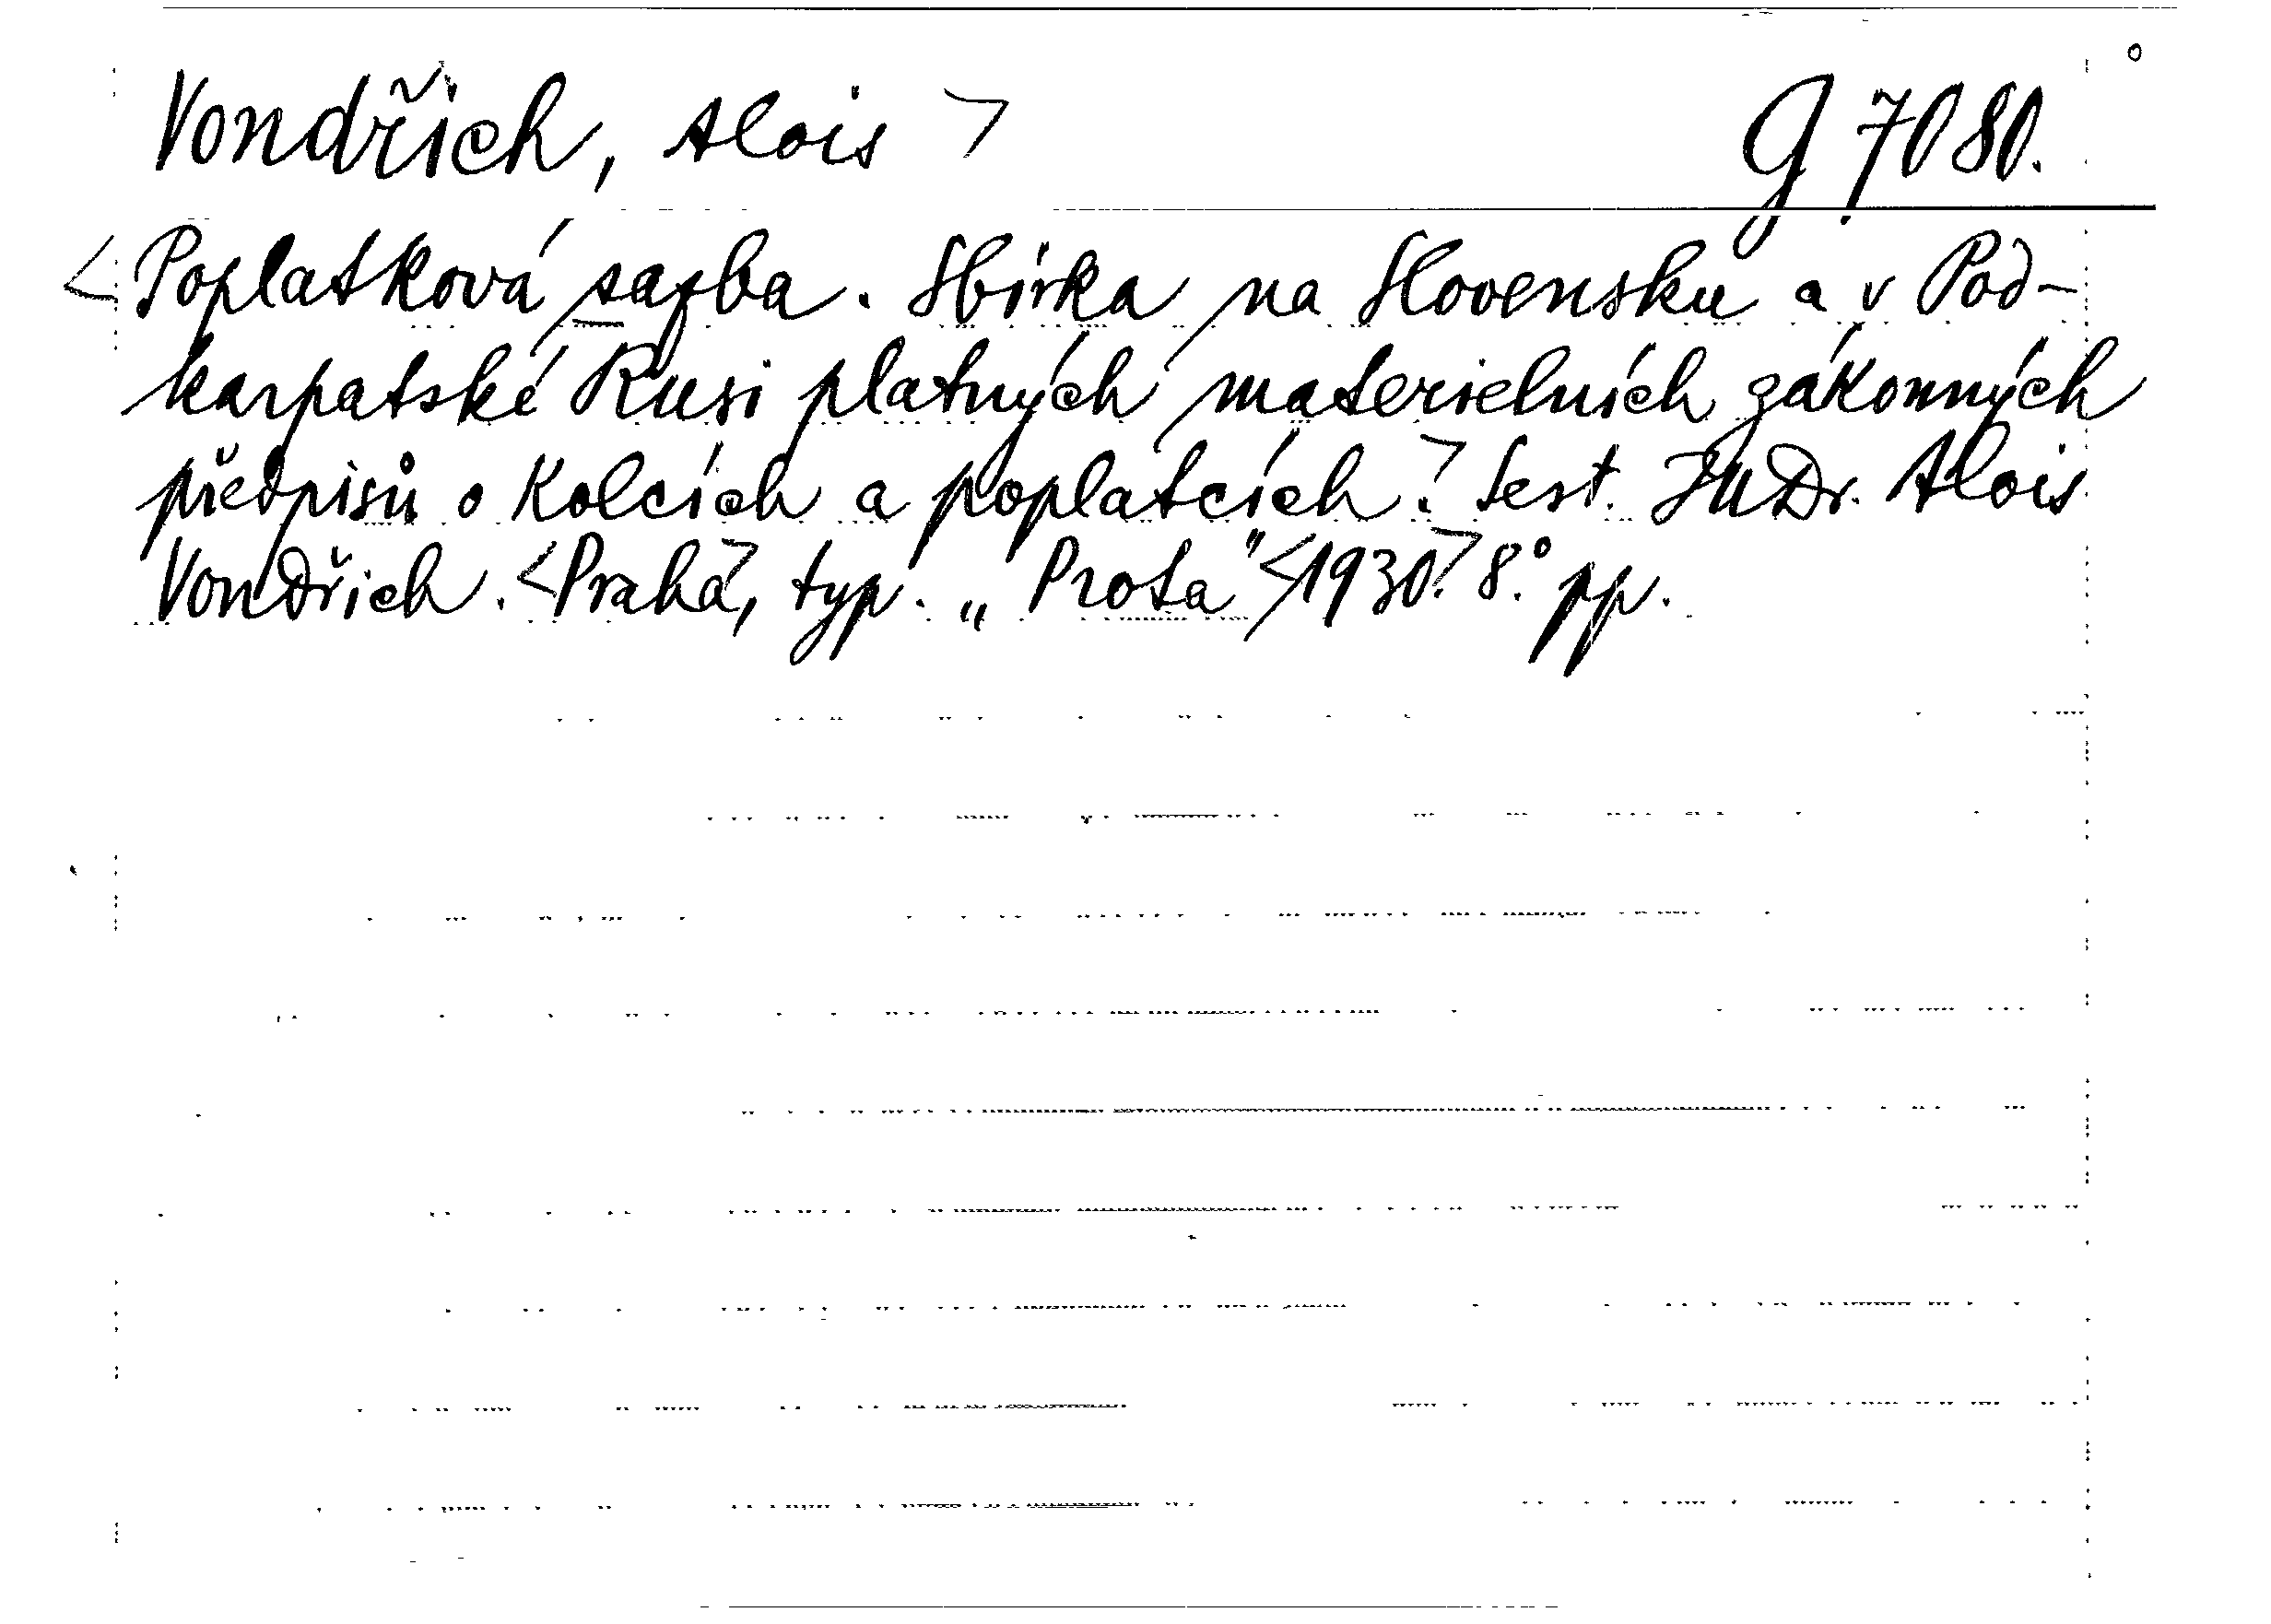 Vondřich, Alois > G 7080.
<Poplatková sazba. Sbírka na Slovensku a v Pod-
karpatské Rusi platných materielních zákonných
předpisů o kolcích a poplatcích.> Sest. JUDr. Alois
Vondřich. <Praha>, typ. „Prota" <1930.> 8.° pp.